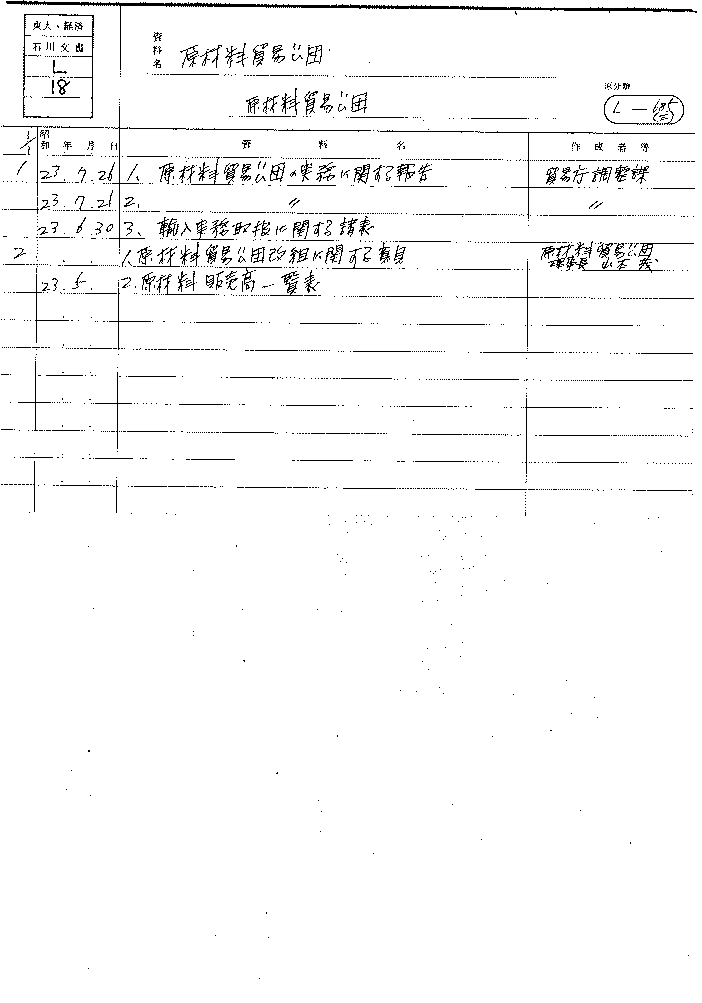 東大・経済
石川文書
L
18
資料名 原材料貿易公団
原材料貿易公団
原分類
L — 685
(三)
昭和 年 月 日 資 料 名 作成者等
1 23. 7. 26 1、原材料貿易公団の実務に関する報告 貿易庁調整課
23. 7. 26 2、 〃 〃
23. 6. 30 3、輸入事務取扱に関する諸表
2 . . 1、原材料貿易公団改組に関する意見 原材料貿易公団
理事長 山本 茂
23. 5. 2. 原材料販売高一覧表